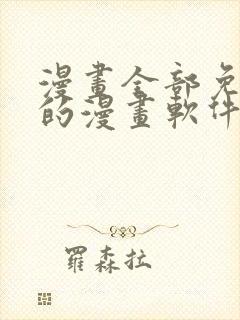 漫畫全部免
的漫畫軟件
羅森拉